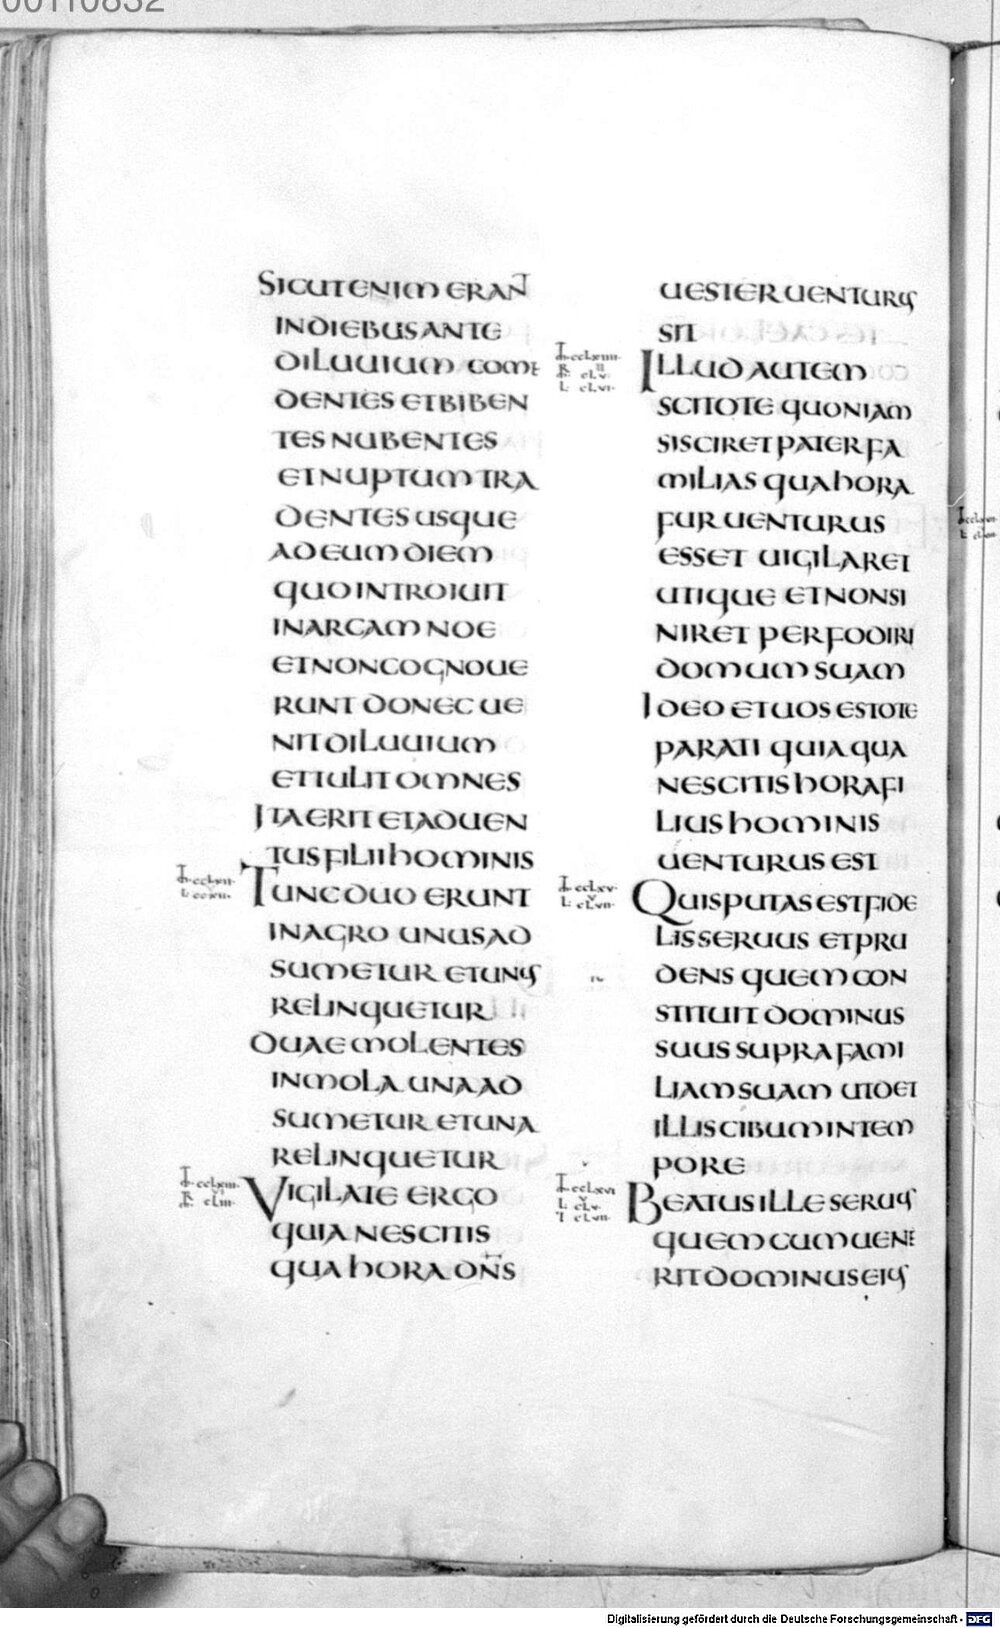 00110832
SICUTENIM ERANT
INDIEBUS ANTE
DILUUIUM COME
DENTES ETBIBEN
TES NUBENTES
ETNUPTUM TRA
DENTES USQUE
AD EUM DIEM
QUO INTROIUIT
INARCAM NOE
ETNONCOGNOUE
RUNT DONEC UE
NIT DILUUIUM
ETTULIT OMNES
ITAERIT ETADUEN
TUS FILII HOMINIS
TUNC DUO ERUNT
INAGRO UNUS AD
SUMETUR ETUNUS
RELINQUETUR
DUAE MOLENTES
INMOLA UNA AD
SUMETUR ETUNA
RELINQUETUR
VIGILATE ERGO
QUIA NESCITIS
QUA HORA DNS
UESTER UENTURUS
SIT
ILLUD AUTEM
SCITOTE QUONIAM
SISCIRET PATER FA
MILIAS QUA HORA
FUR UENTURUS
ESSET UIGILARET
UTIQUE ETNONSI
NIRET PERFODIRI
DOMUM SUAM
IDEO ETUOS ESTOTE
PARATI QUIA QUA
NESCITIS HORA FI
LIUS HOMINIS
UENTURUS EST
QUIS PUTAS EST FIDE
LIS SERUUS ETPRU
DENS QUEM CON
STITUIT DOMINUS
SUUS SUPRA FAMI
LIAM SUAM UTDET
ILLIS CIBUM INTEM
PORE
BEATUS ILLE SERUUS
QUEM CUM UENE
RIT DOMINUS EIUS
Digitalisierung gefördert durch die Deutsche Forschungsgemeinschaft - DFG